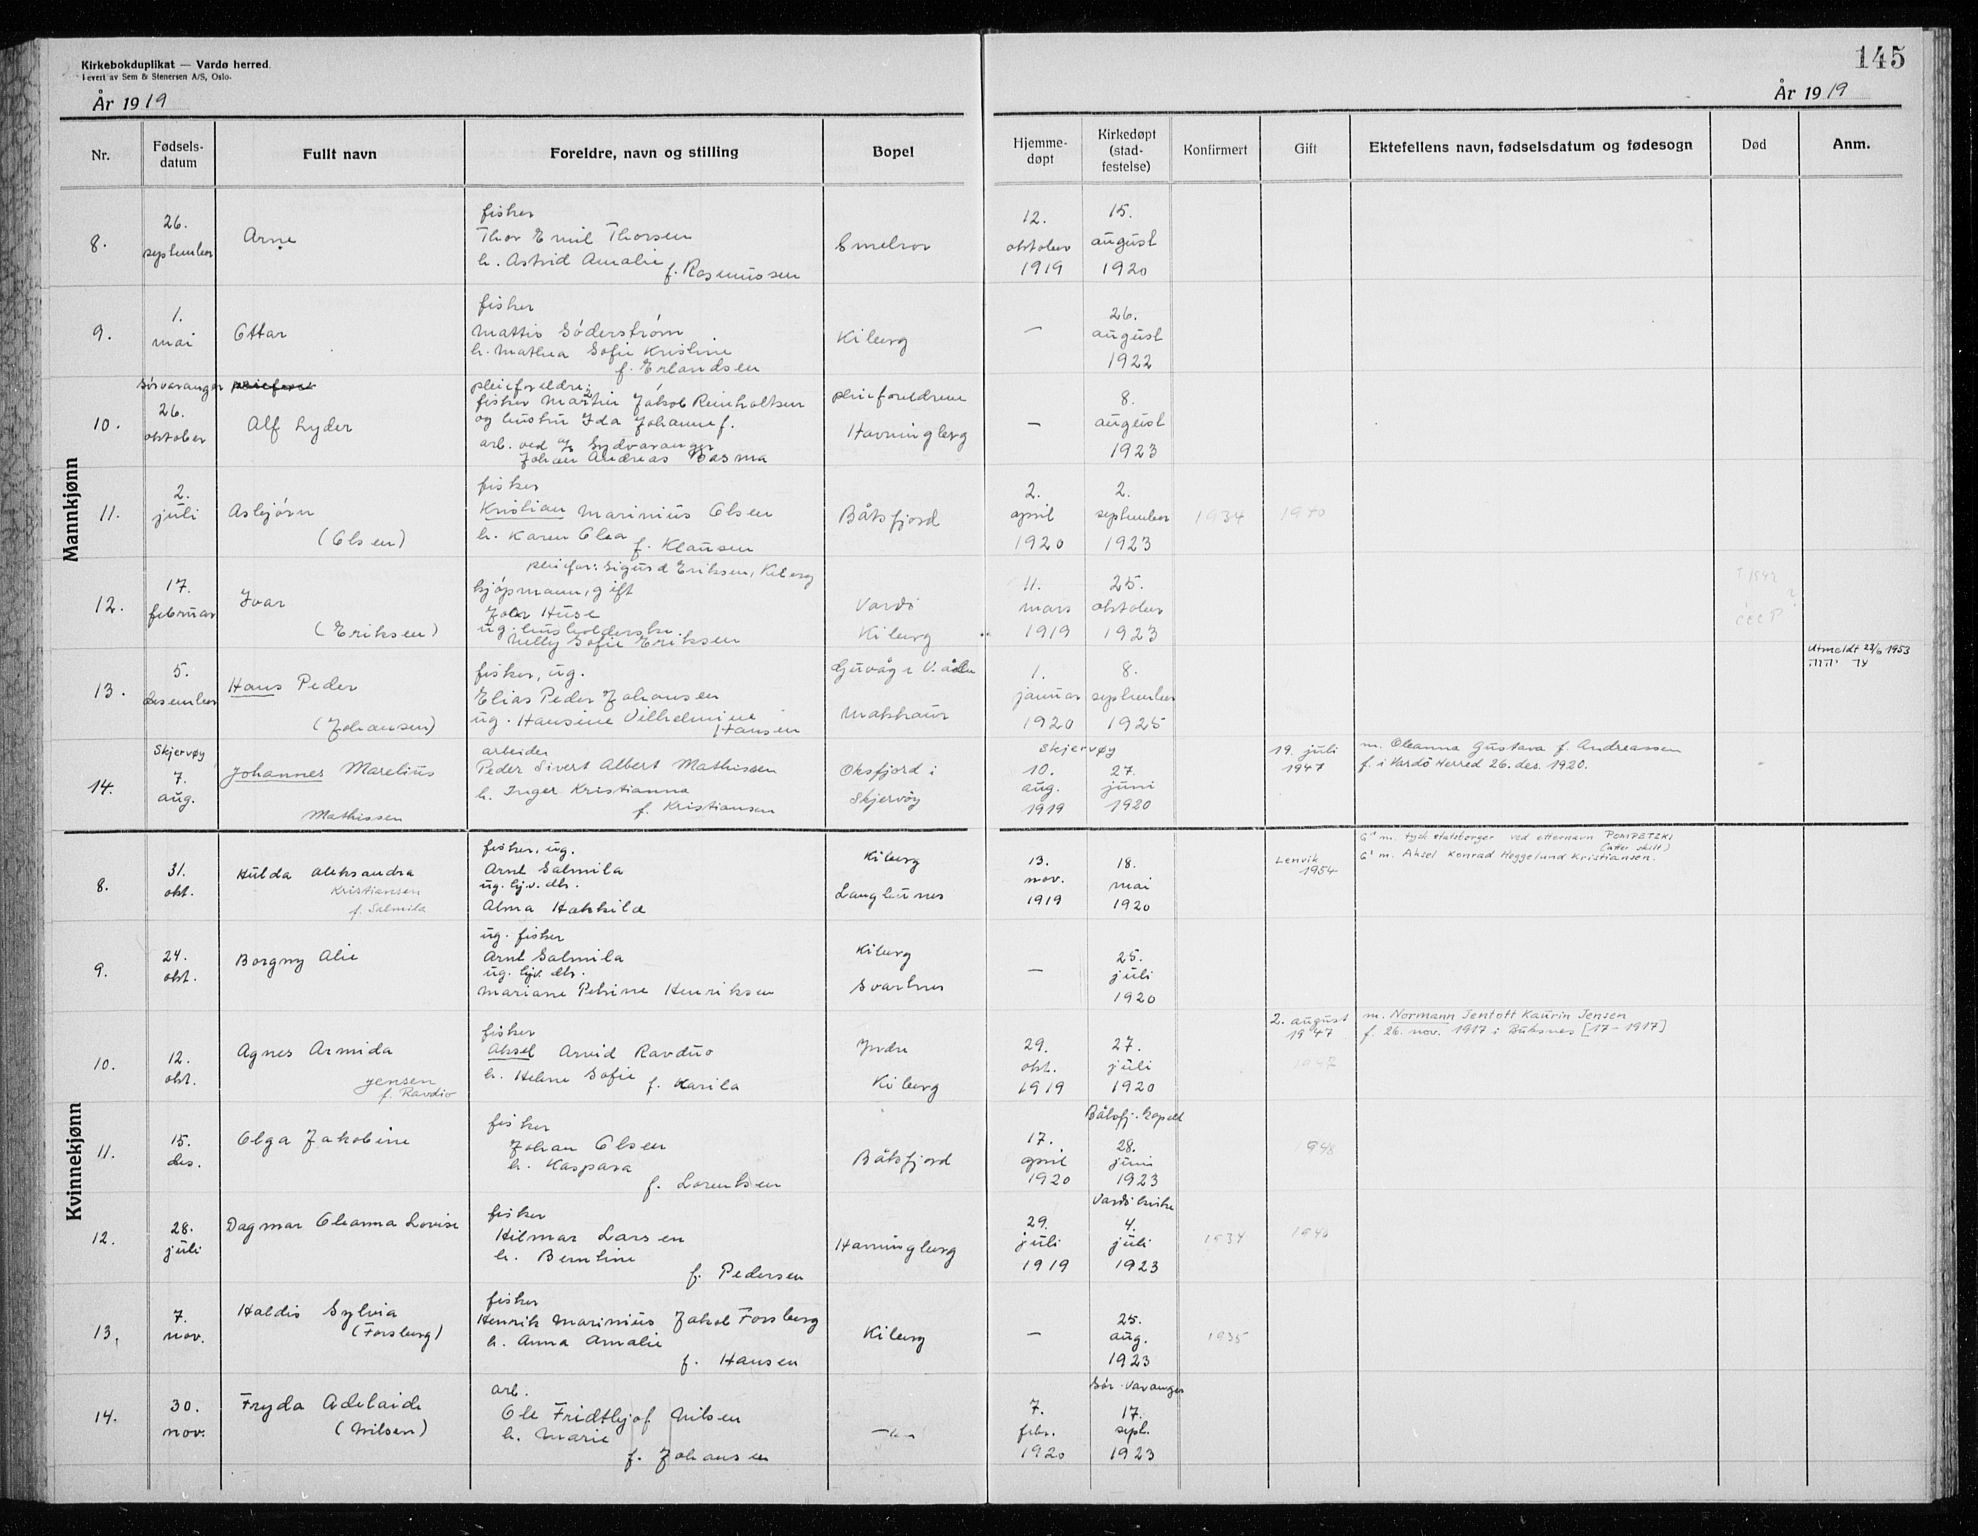 Kirkebokduplikat — Vardø herred.
Levert av Sem & Stenersen A/S, Oslo.
År 1919
145
År 1919
Nr.
Fødsels-
datum
Fullt navn
Foreldre, navn og stilling
Bopel
Hjemme-
døpt
Kirkedøpt
(stad-
festelse)
Konfirmert
Gift
Ektefellens navn, fødselsdatum og fødesogn
Død
Anm.
Mannkjønn
8.
26.
september
Arne
fisker
Thor Emil Thorsen
h. Astrid Amalie
f. Rasmussen
Smelror
12.
oktober
1919
15.
august
1920
9.
1.
mai
Ottar
fisker
Mattis Söderstrøm
h. Mathea Sofie Kristine
f. Erlandsen
Kiberg
—
26.
august
1922
10.
Sørvaranger
26.
oktober
Alf Lyder
pleieforeldre:
fisker Martin Jakob Reinholtsen
og hustru Ida Johanne f.
arb. ved A/S Sydvaranger
Johan Andreas Basma
pleieforeldrene
Havningberg
—
8.
august
1923
11.
2.
juli
Asbjørn
(Olsen)
fisker
Kristian Marinius Olsen
h. Karen Olea
f. Klausen
Båtsfjord
2.
april
1920
2.
september
1923
1934
1940
12.
17.
februar
Ivar
(Eriksen)
pleiefor: Sigurd Eriksen, Kiberg
kjøpmann, gift
Huse
ug. husholderske
Nelly Sofie Eriksen
Vardø
Kiberg
11.
mars
1919
25.
oktober
1923
13.
5.
desember
Hans Peder
(Johansen)
fisker, ug.
Elias Peder Johansen
ug. Hansine Vilhelmine
Hansen
Makkaur
1.
januar
1920
8.
september
1925
Utmeldt 22/6 1953
14.
Skjervøy
7.
aug.
Johannes Marelius
Mathissen
arbeider
Peder Sivert Albert Mathissen
h. Inger Kristianna
f. Kristiansen
Oksfjord i
Skjervøy
Skjervøy
10.
aug.
1919
27.
juni
1920
19. juli
1947
m. Oleanna Gustava f. Andreassen
f. i Vardö Herred 26. des. 1920.
Kvinnekjønn
8.
31.
okt.
Hulda Aleksandra
Kristiansen
f. Salmila
fisker, ug.
Arnt Salmila
ug. hjv. dtr.
Alma Hakkila
Kiberg
Langbunes
13.
nov.
1919
18.
mai
1920
Lenvik
1954
G" m. tysk statsborger ved etternavn POMPETZKI
(atter skilt)
G' m. Aksel Konrad Heggelund Kristiansen.
9.
24.
okt.
Borgny Alie
ug. fisker
Arnt Salmila
ug. hjv. dtr.
Mariane Petrine Henriksen
Kiberg
Svartnes
—
25.
juli
1920
10.
12.
okt.
Agnes Armida
Jensen
f. Ravduo
fisker
Aksel Arvid Ravduo
h. Helene Sofie f. Karila
Indre
Kiberg
29.
okt.
1919
27.
juli
1920
2. august
1947
1947
m. Normann Jentoft Kaurin Jensen
f. 26. nov. 1917 i Buksnes [17 - 1917]
11.
15.
des.
Olga Jakobine
fisker
Johan Olsen
h. Kaspara
f. Lorentsen
Båtsfjord
17.
april
1920
Båtsfj. kapell
28.
juni
1923
948
12.
28.
juli
Dagmar Oleanna Lovise
fisker
Hilmar Larsen
h. Berntine
f. Pedersen
Havningberg
29.
juli
1919
Vardø kirke
4.
juli
1923
1934
1940
13.
7.
nov.
Haldis Sylvia
(Forsberg)
fisker
Henrik Marinius Jakob Forsberg
h. Anna Amalie
f. Hansen
Kiberg
—
25.
aug.
1923
1935
14.
30.
nov.
Fryda Adelaide
(Nilsen)
arb.
Ole Fridthjof Nilsen
h. Marie
f. Johansen
7.
febr.
1920
Sør-Varanger
17.
sept.
1923